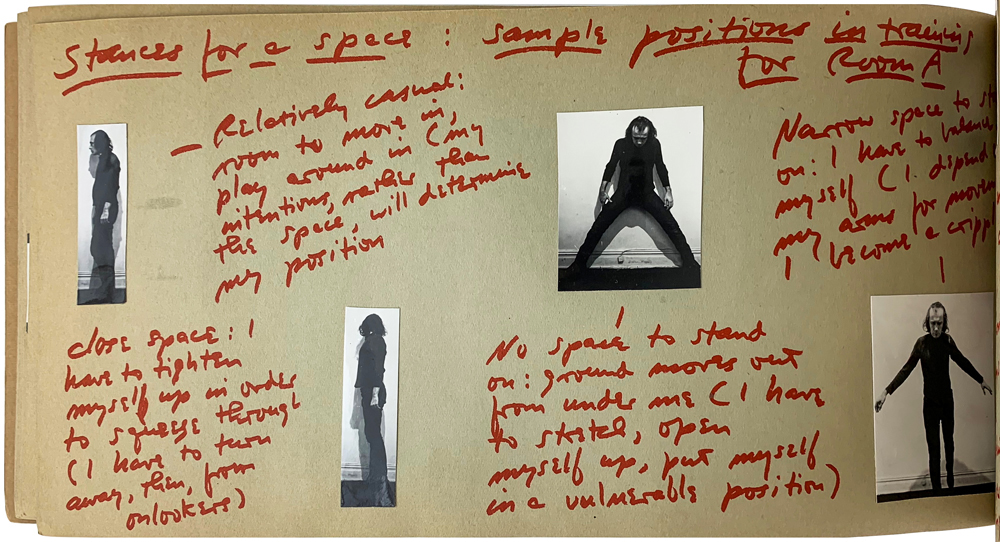 Stances for a space : sample positions in training
for Room A
— Relatively casual:
room to move in,
play around in (my
intentions, rather than
the space, will determine
my position
Narrow space to
on: I have to balance
myself (I depend
my arms for
I become a
close space: I
have to tighten
myself up in order
to squeeze through
(I have to turn
away, then, from
onlookers)
No space to stand
on: ground moves out
from under me (I have
to stretch, open
myself up, put myself
in a vulnerable position)